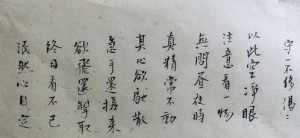 守一不移偈：
以此空淨眼
注意看一物
無間晝夜時
真精常不動
其心欲馳散
急手還攝來
欲飛還掣取
終日看不已
泯然心自定